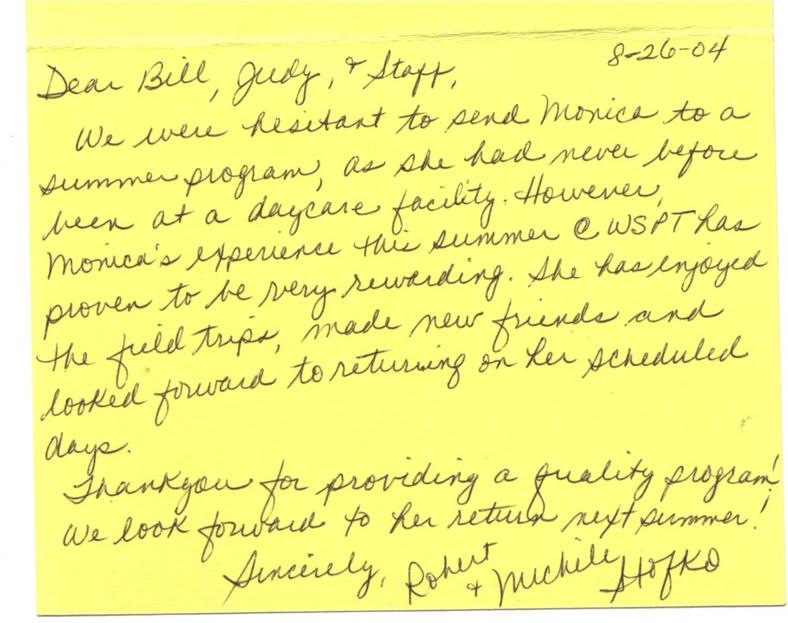 8-26-04
Dear Bill, Judy, & Staff,
We were hesitant to send Monica to a
summer program, as she had never before
been at a daycare facility. However,
Monica's experience this summer @ WSPT has
proven to be very rewarding. She has enjoyed
the field trips, made new friends and
looked forward to returning on her scheduled
days.
Thankyou for providing a quality program!
We look forward to her return next summer!
Sincerely, Robert & Michele Hofko